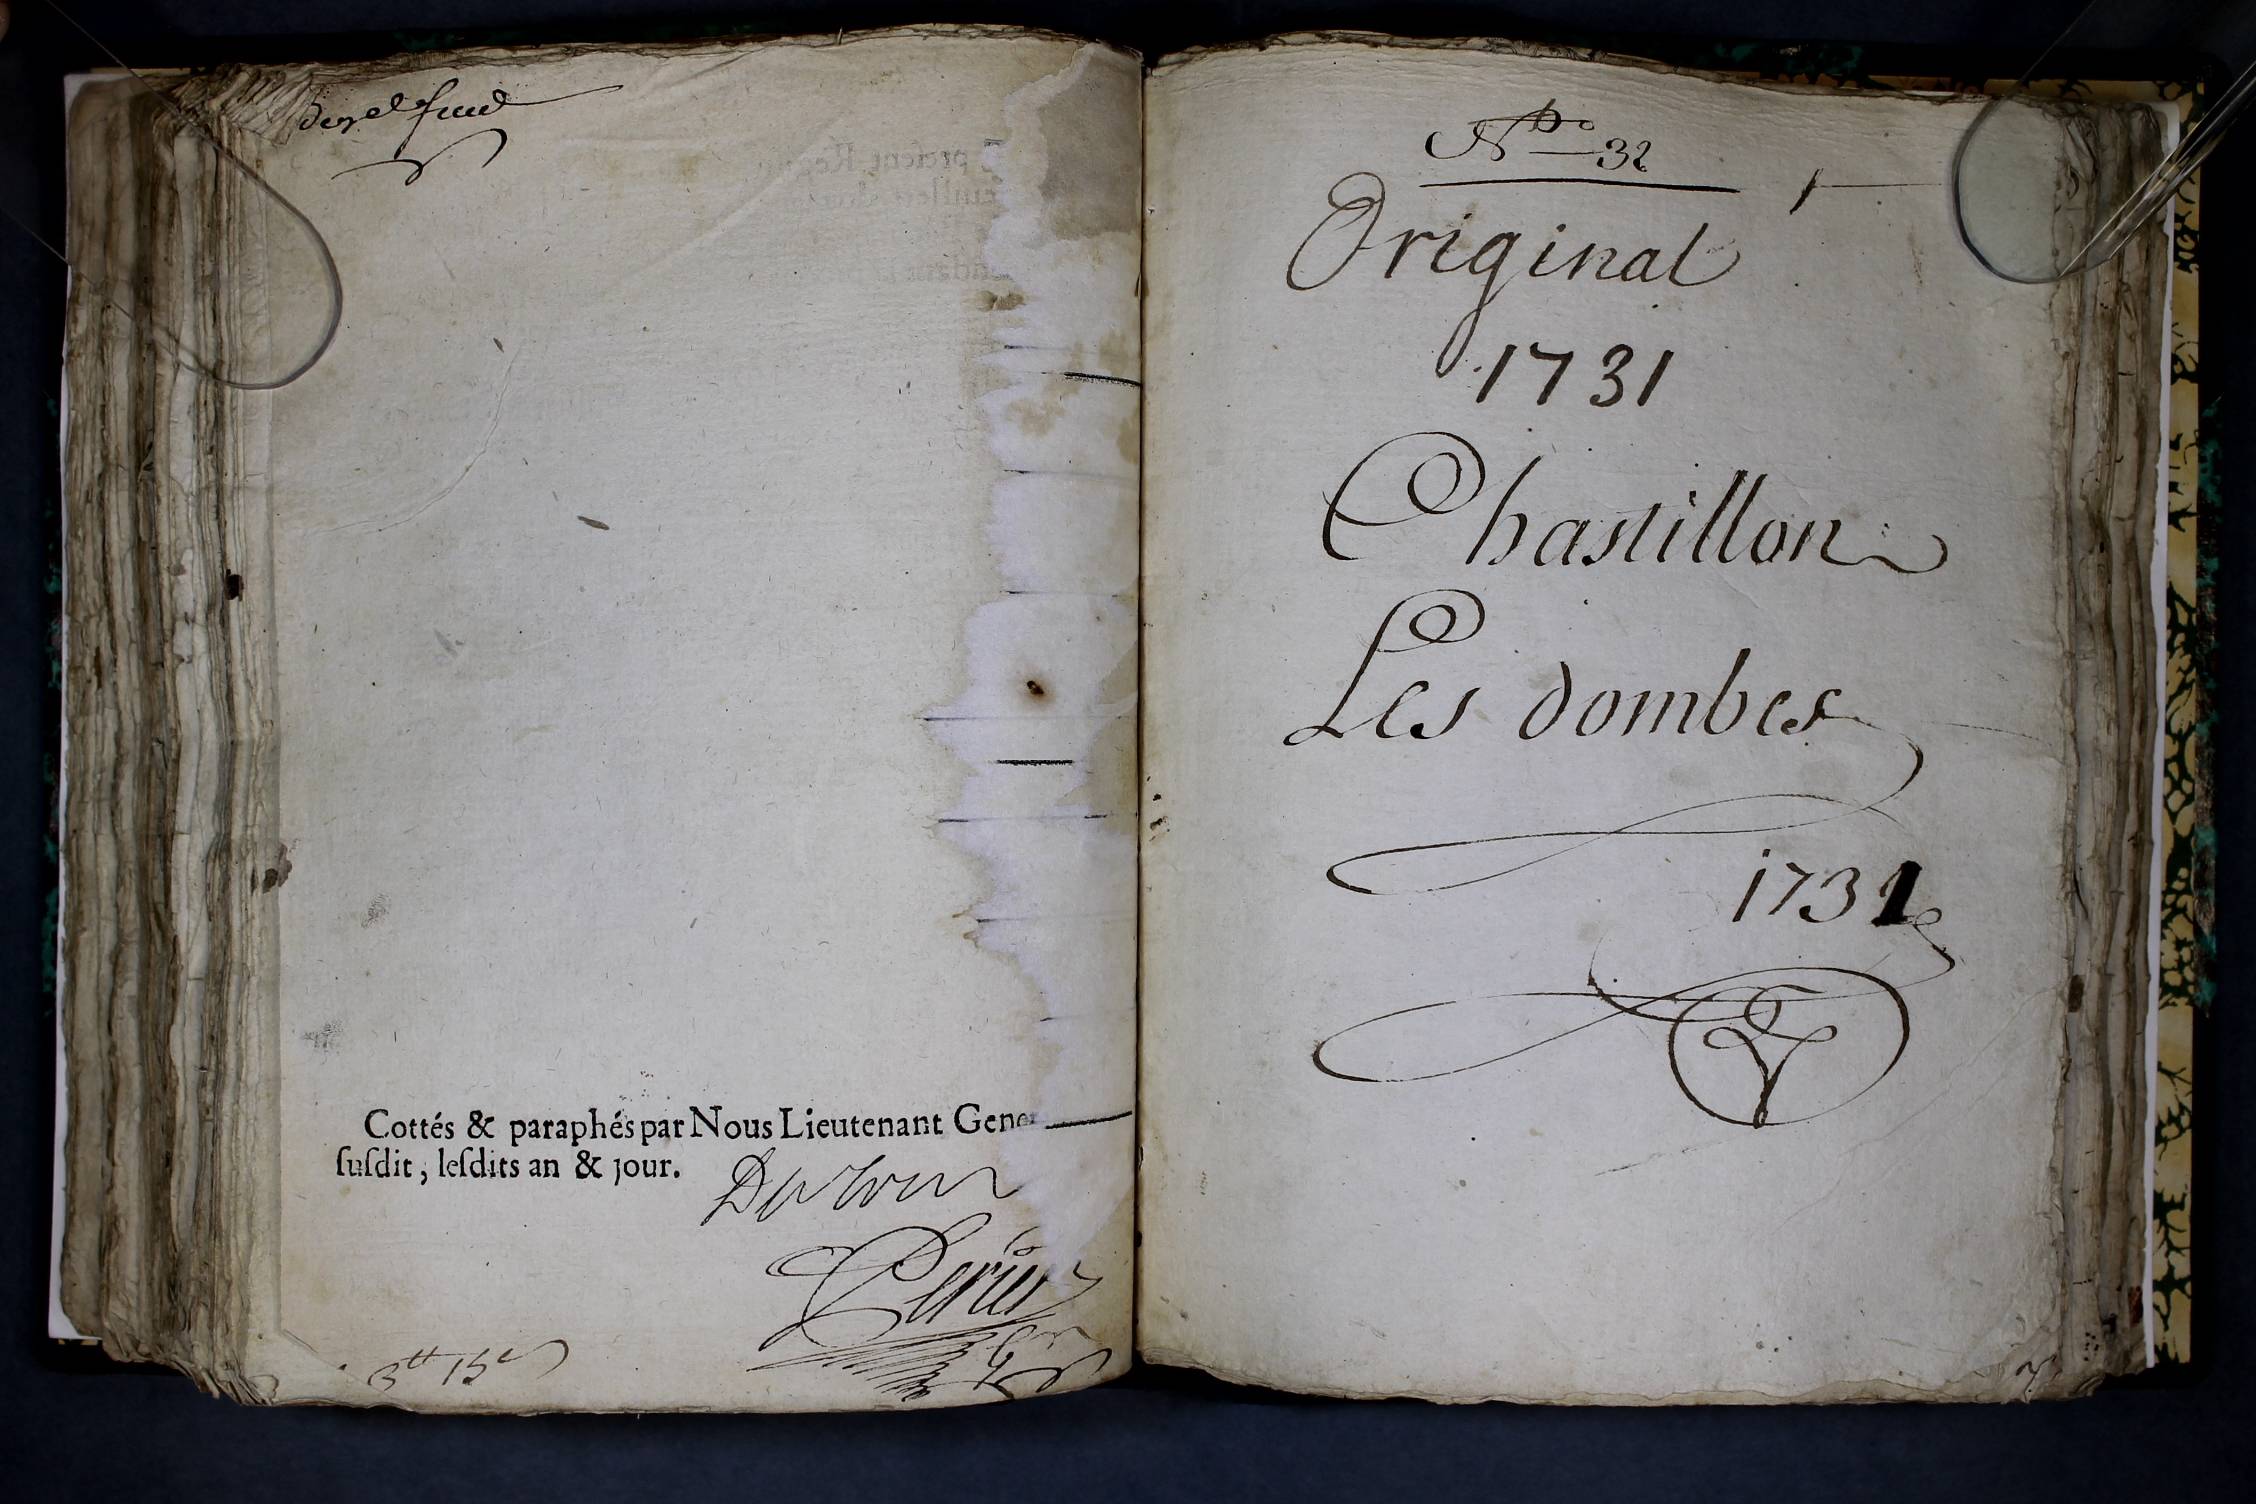 Cottés & paraphés par Nous Lieutenant Gene
ſuſdit, leſdits an & jour.
3tt 15
No 32
1
Original
1731
Chastillon
Les dombes
1731